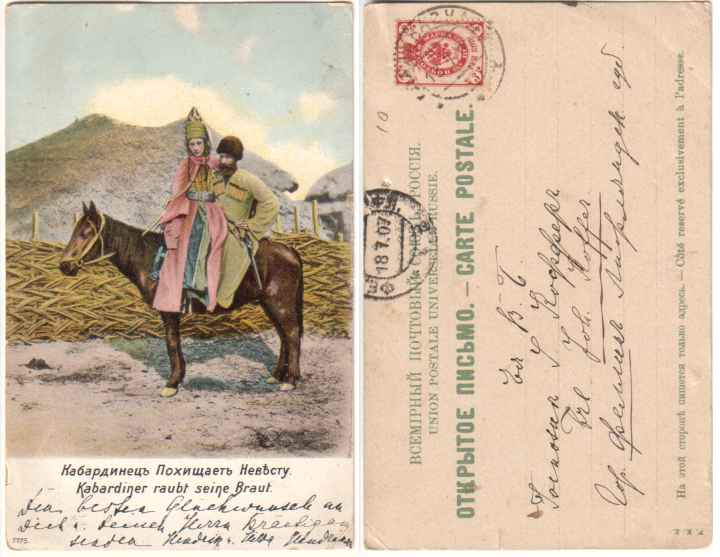 Кабардинецъ Похищаетъ Невѣсту.
Kabardiner raubt seine Braut.
Die besten Glückwünsche an
Dich u. Deinen Herrn Bräutigam
senden
7775.
ВСЕМІРНЫЙ ПОЧТОВЫЙ СОЮЗЪ. РОССІЯ.
UNION POSTALE UNIVERSELLE. RUSSIE.
ОТКРЫТОЕ ПИСЬМО. — CARTE POSTALE.
18 7.07
10
Ея В. Б.
Frl. Joh. Hoffer
Гор. Феллинъ Лифляндск. губ.
На этой сторонѣ пишется только адресъ. — Côté reservé exclusivement à l'adresse.